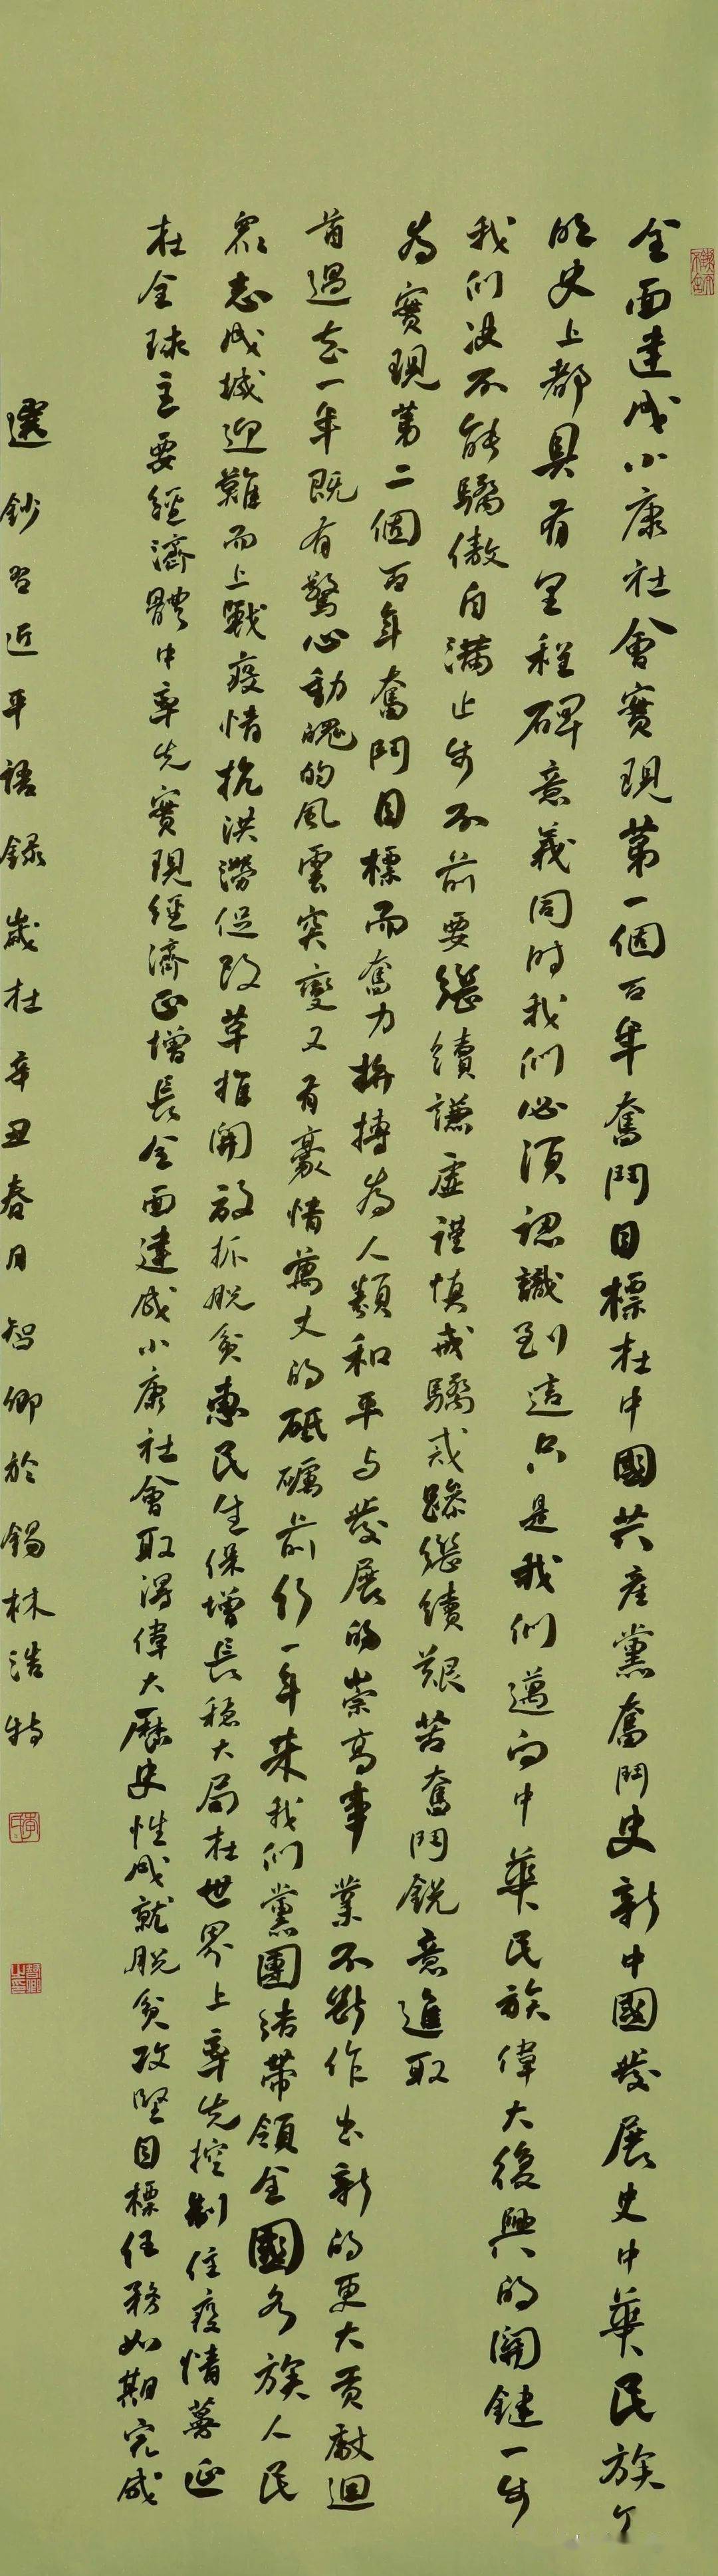 全面建成小康社會實現第一個百年奮鬥目標在中國共產黨奮鬥史新中國發展史中華民族
明史上都具有里程碑意義同時我們必須認識到這只是我們邁向中華民族偉大復興的關鍵一步
我們決不能驕傲自滿止步不前要繼續謙虛謹慎戒驕戒躁繼續艱苦奮鬥銳意進取
為實現第二個百年奮鬥目標而奮力拚搏為人類和平與發展的崇高事業不斷作出新的更大貢獻迴
首過去一年既有驚心動魄的風雲突變又有豪情萬丈的砥礪前行一年來我們黨團結帶領全國各族人民
眾志成城迎難而上戰疫情抗洪澇促改革推開放抓脫貧惠民生保增長穩大局在世界上率先控制住疫情蔓延
在全球主要經濟體中率先實現經濟正增長全面建成小康社會取得偉大歷史性成就脫貧攻堅目標任務如期完成
選鈔習近平語錄歲在辛丑春月智卿於錫林浩特